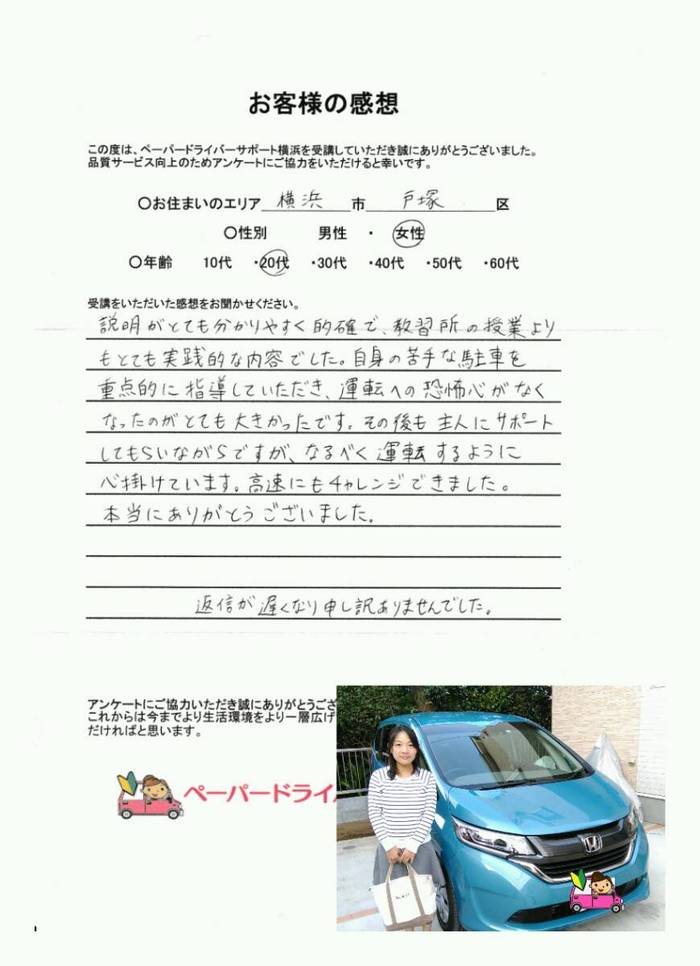 お客様の感想
この度は、ペーパードライバーサポート横浜を受講していただき誠にありがとうございました。
品質サービス向上のためアンケートにご協力をいただけると幸いです。
○お住まいのエリア 横浜 市 戸塚 区
○性別 男性 ・ 女性
○年齢 10代 ・20代 ・30代 ・40代 ・50代 ・60代
受講をいただいた感想をお聞かせください。
説明がとても分かりやすく的確で、教習所の授業より
もとても実践的な内容でした。自身の苦手な駐車を
重点的に指導していただき、運転への恐怖心がなく
なったのがとても大きかったです。その後も主人にサポート
してもらいながらですが、なるべく運転するように
心掛けています。高速にもチャレンジできました。
本当にありがとうございました。
返信が遅くなり申し訳ありませんでした。
アンケートにご協力いただき誠にありがとうござ
これからは今までより生活環境をより一層広げ
だければと思います。
ペーパードライバ